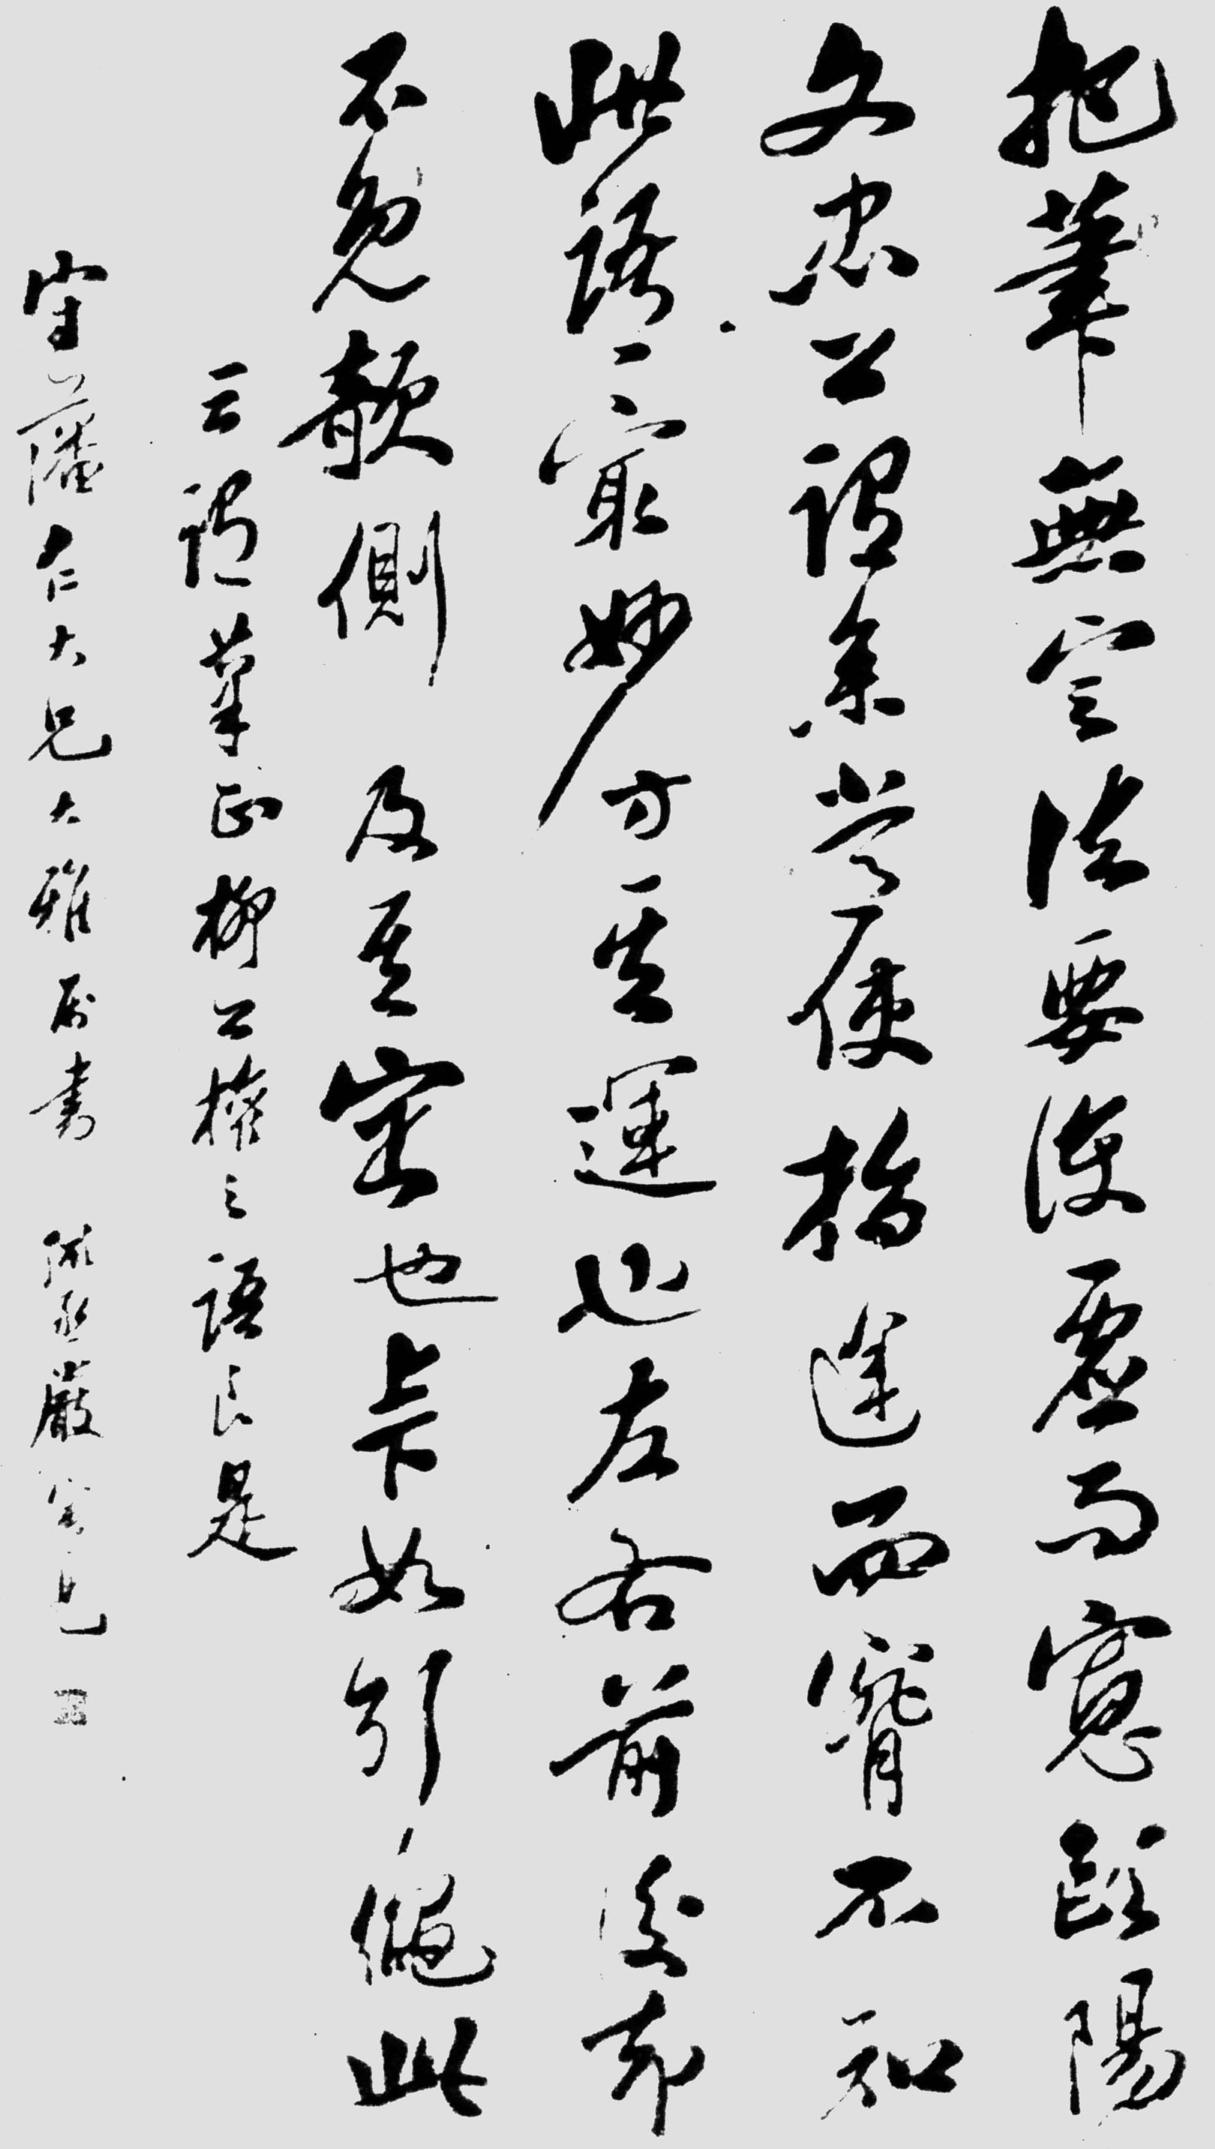 把筆無定法要使虛而寬歐陽
文忠公謂余當使指運而腕不知
此語最妙方其運也左右前後却
不免欹側及其定也上下如引繩此
云謂筆正柳公權之語良是
守藩仁大兄大雅属書 嚴